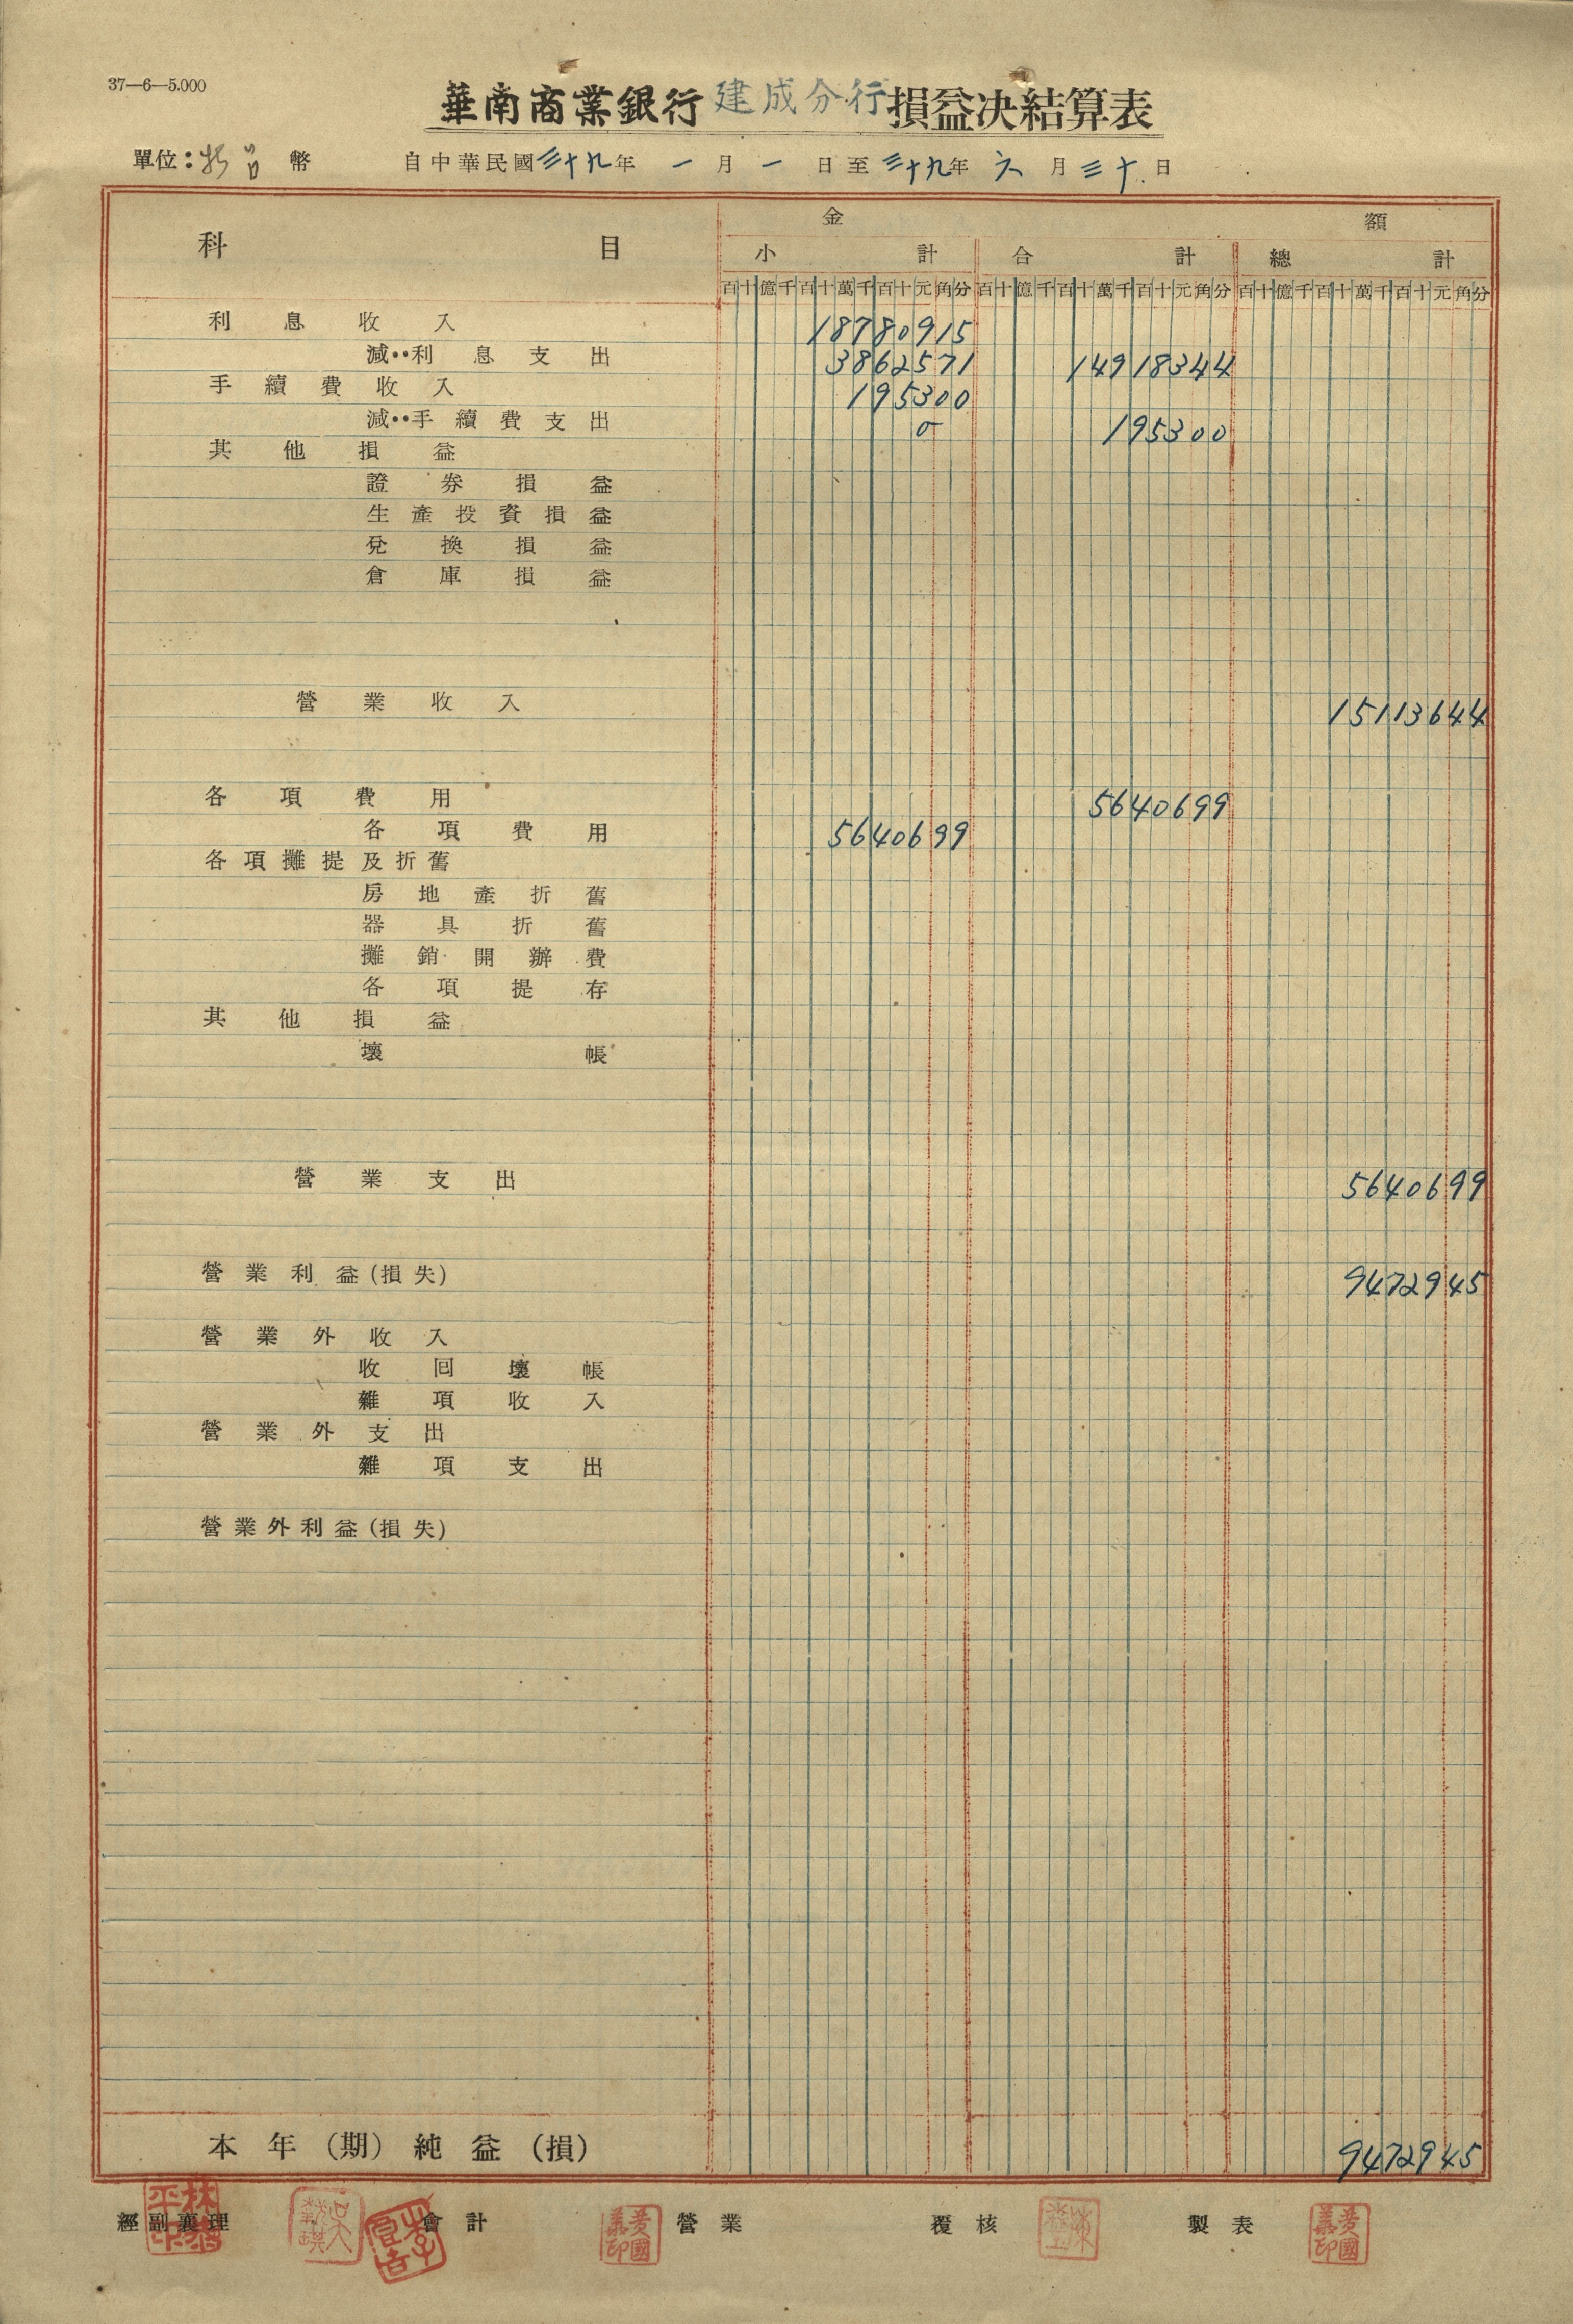 37—6—5.000
華南商業銀行建成分行損益决結算表
單位：新台幣 自中華民國三十九年一月一日至三十九年六月三十日
科目 金額
小計 合計 總計
百十億千百十萬千百十元角分 百十億千百十萬千百十元角分 百十億千百十萬千百十元角分
利息收入 18780915
減‥利息支出 3862571 14918344
手續費收入 195300
減‥手續費支出 0 195300
其他損益
證券損益
生產投資損益
兌換損益
倉庫損益
營業收入 15113644
各項費用 5640699
各項費用 5640699
各項攤提及折舊
房地產折舊
器具折舊
攤銷開辦費
各項提存
其他損益
壞帳
營業支出 5640699
營業利益(損失) 9472945
營業外收入
收回壞帳
雜項收入
營業外支出
雜項支出
營業外利益(損失)
本年(期)純益(損) 9472945
經副襄理 會計 營業 覆核 製表
黃國 黃國